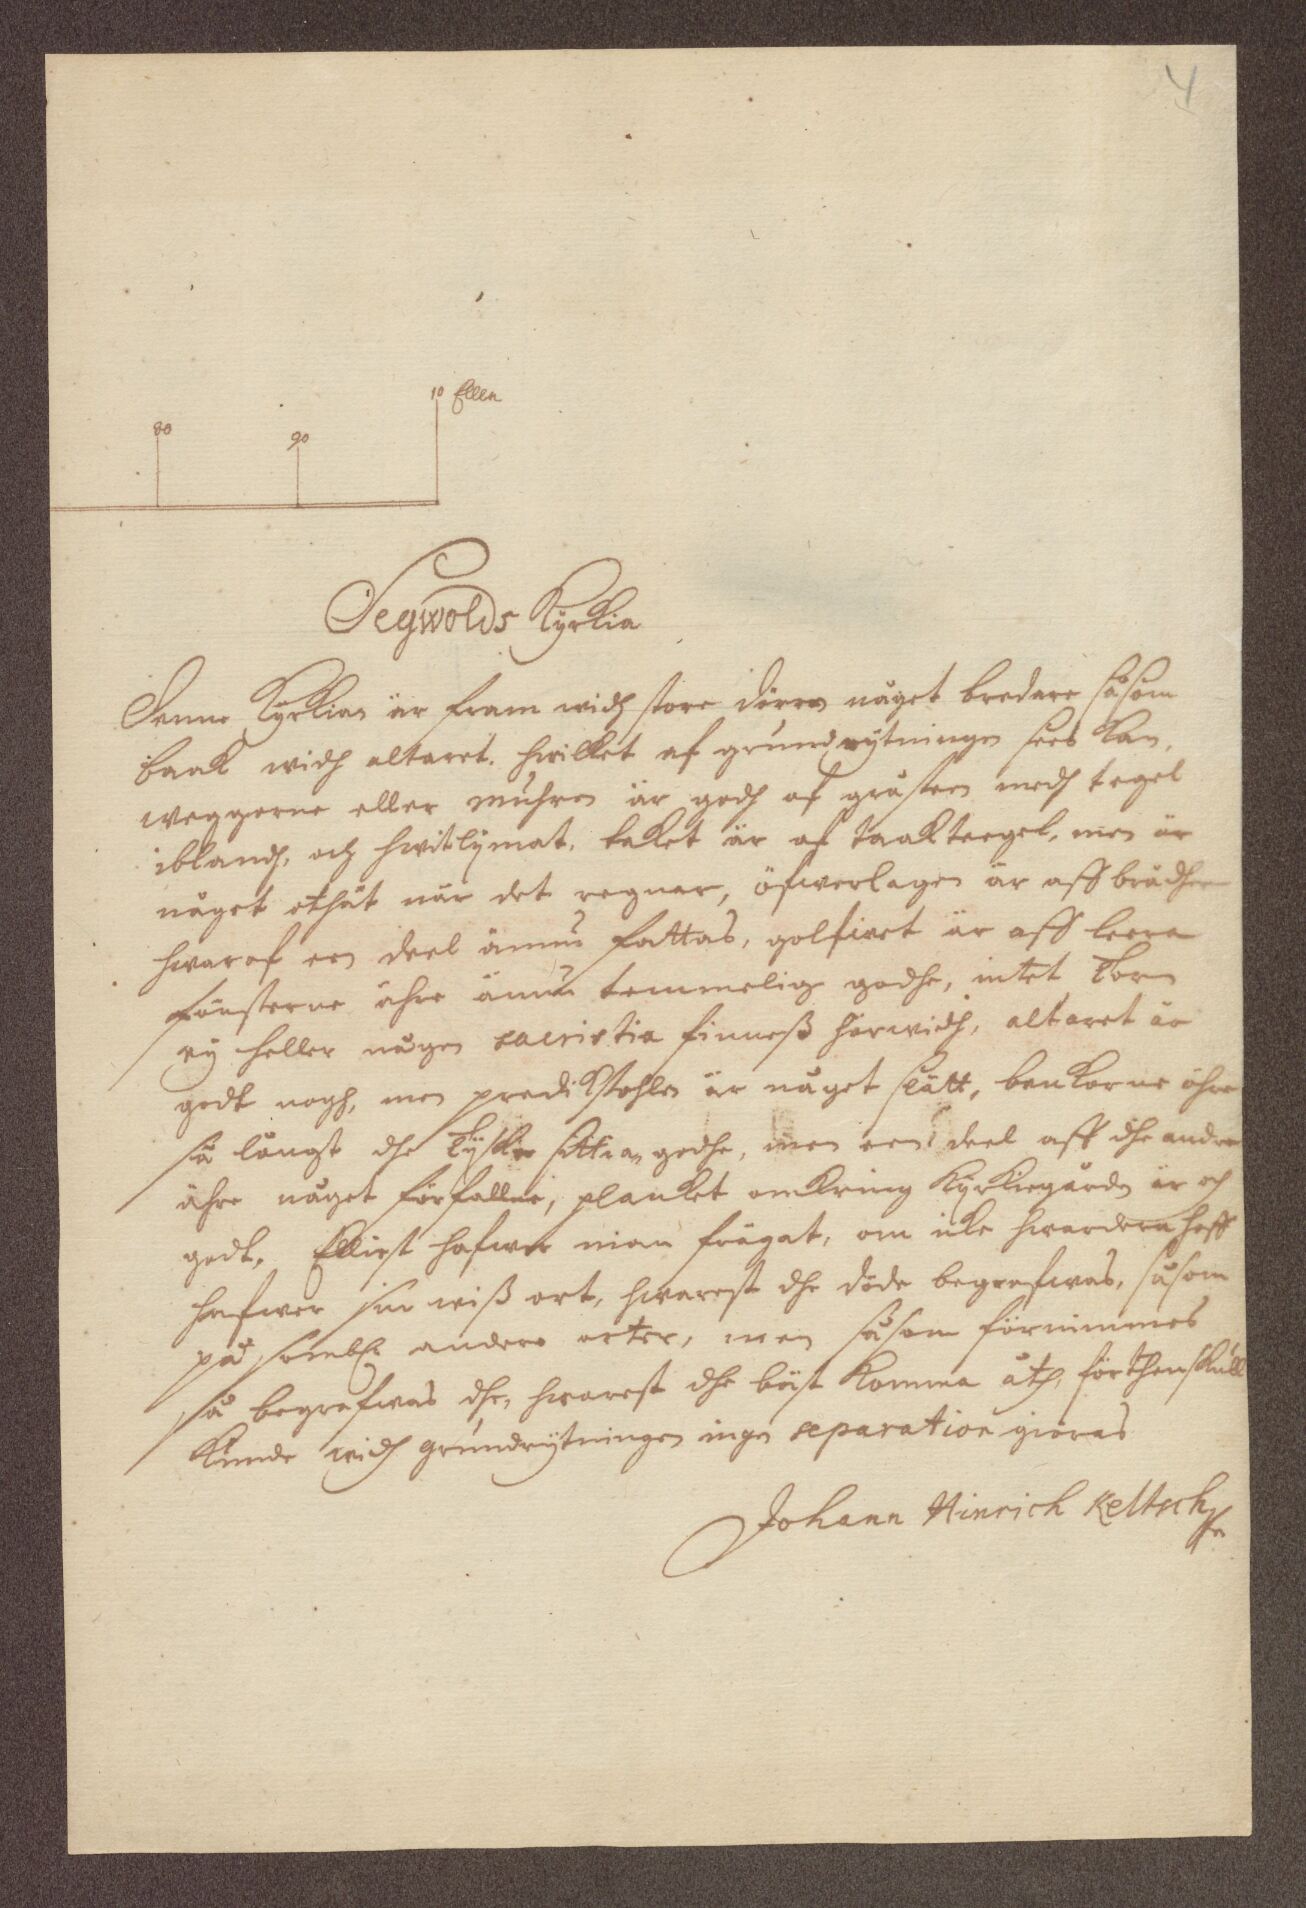 4
10 Ellen
80
90
Segwolds Kÿrkia
Denne Kÿrkian är fram widh store dören någet bredare såsom
baak widh altaret. hwilket af grundrÿtningen sees kan,
weggerne eller muhren är godh af gråsteen medh tegel
iblandh, och hwitlÿmat, taket är af taakteegel, men är
något othät när det regnar, öfwerlagen är aff brädher
hwaraf een deel ännu fattas, golfwet är aff leera
fönsterne ähre ännu temmelig godhe, intet torn
eÿ heller någen sacristia finneß härwidh, altaret är
godt nogh, men predikstohlen är någet slätt, benkerne ähre
så långt dhe Tÿsker sittia godhe, men een deel aff dhe andre
ähre någet förfallne, planket omkring Kÿrkiegården är och
godt, Elliest hafwer man frågat, om icke hwardera hoff
hafwer sin wiß ort, hwarest dhe döde begrafwas, såsom
på somblige andere orter, men såsom förnimmes
så begrafwas dhe, hwarest dhe bäst komma åth, förthenskull
kunde widh grundrÿtningen ingen separation giöras
Johann Hinrich Keltsch